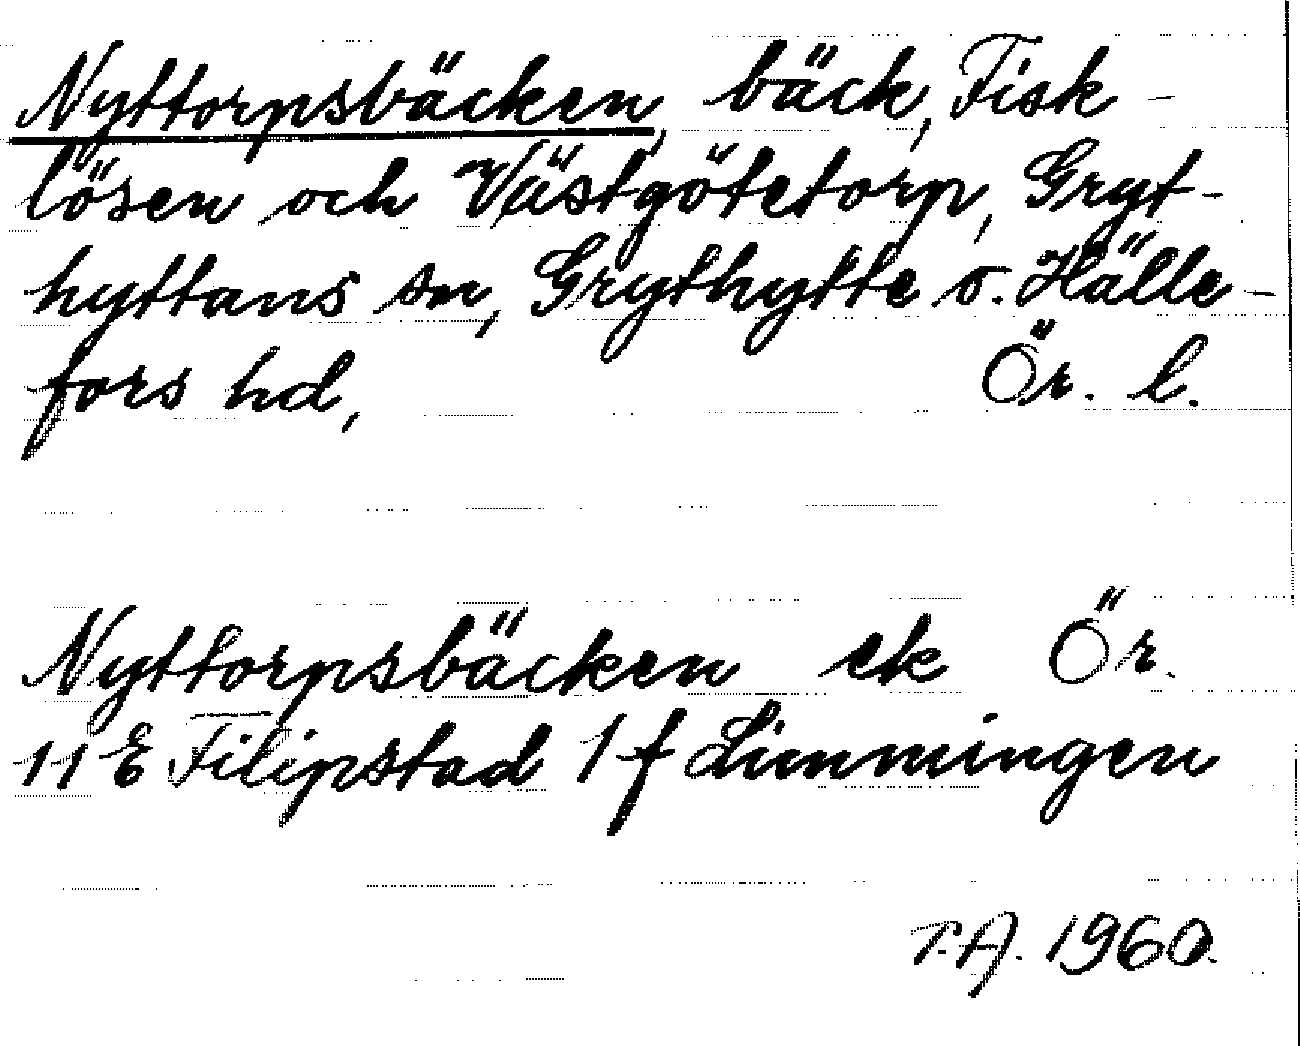 Nyttorpsbäcken, bäck, Fisk-
lösen och Västgötetorp, Gryt-
hyttans sn, Grythytte o. Hälle-
fors hd, Ör. l.
Nyttorpsbäcken ek Ör.
11 E Filipstad 1 f Limmingen
T.A. 1960